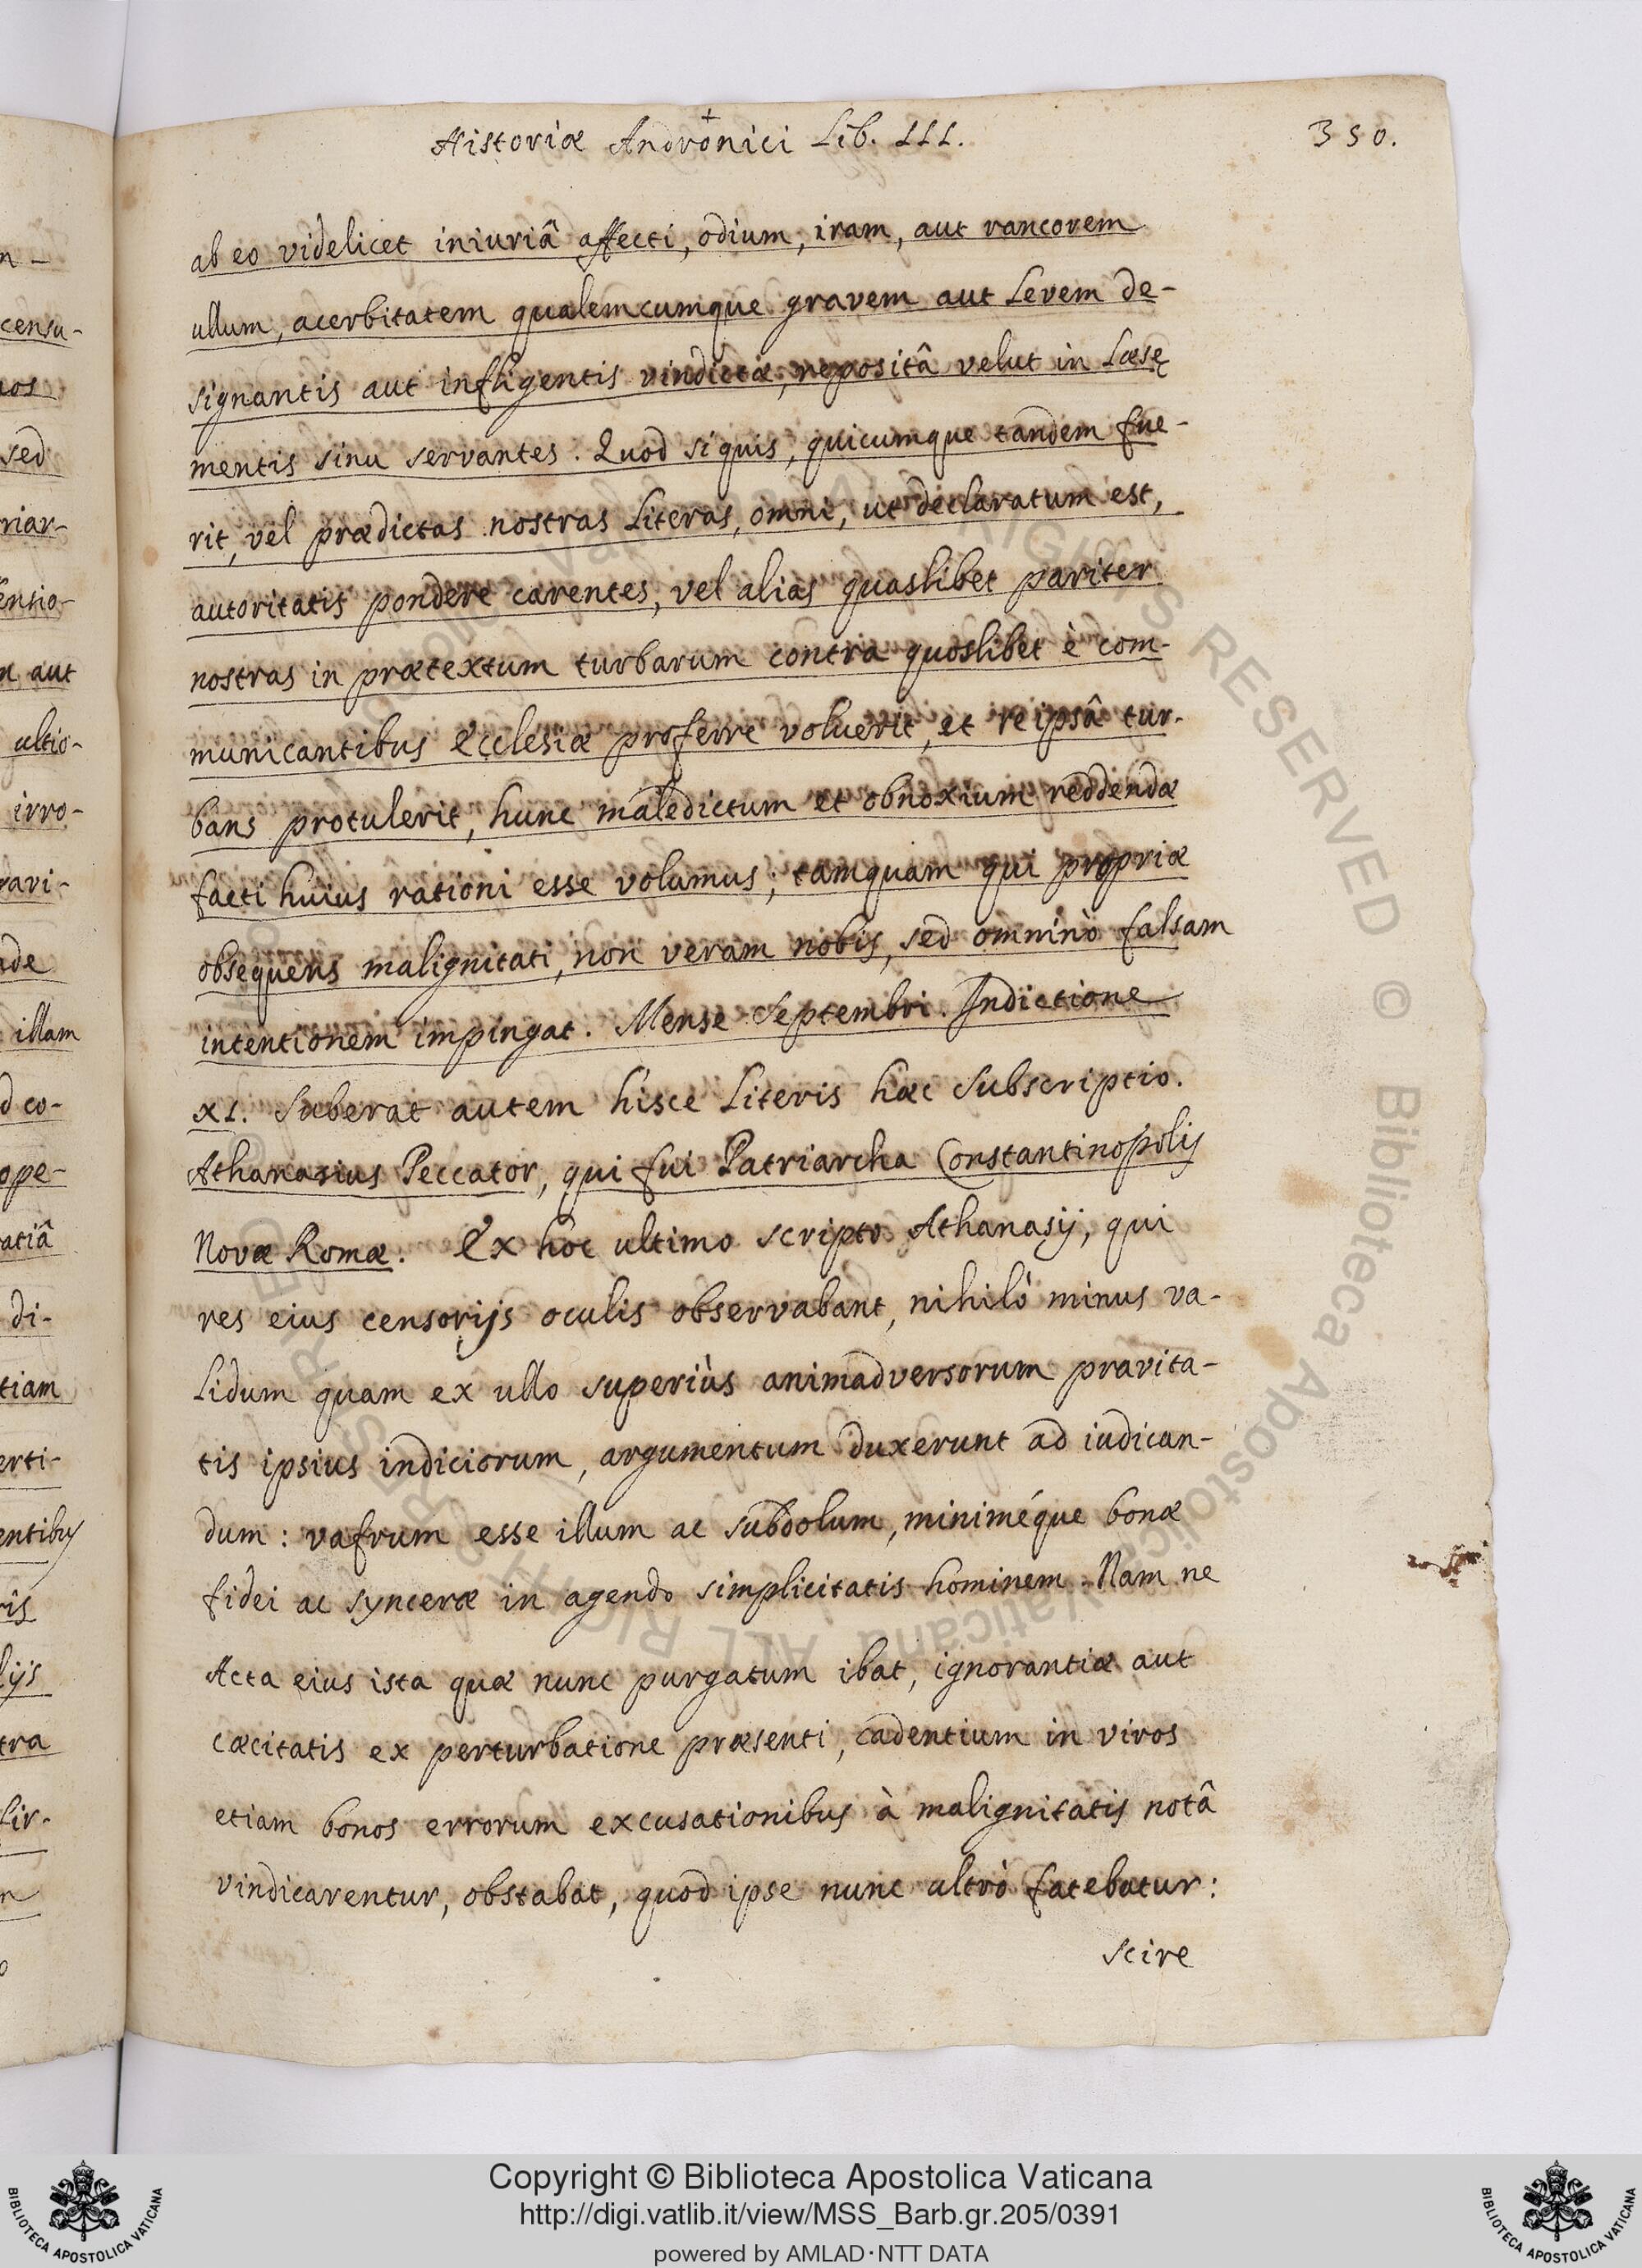 Historiæ Andronici Lib. III.
350.
ab eo videlicet iniuriâ affecti, odium, iram, aut rancorem
ullum, acerbitatem qualemcumque gravem aut levem de-
signantis aut infligentis vindictæ, repositâ velut in læsę
mentis sinu servantes. Quod siquis, quicumque tandem fue-
rit, vel prædictas nostras literas, omni, ut declaratum est,
autoritatis pondere carentes, vel alias quaslibet pariter
nostras in prætextum turbarum contra quoslibet è com-
municantibus Ecclesiæ proferre voluerit, et reipsâ tur-
bans protulerit, hunc maledictum et obnoxium reddendæ
facti huius rationi esse volumus; tamquam qui propriæ
obsequens malignitati, non veram nobis, sed omninò falsam
intentionem impingat. Mense Septembri. Indictione
XI. Suberat autem hisce literis hæc subscriptio.
Athanasius Peccator, qui fui Patriarcha Constantinopolis
Novæ Romæ. Ex hoc ultimo scripto Athanasij, qui
res eius censorijs oculis observabant, nihilò minus va-
lidum quam ex ullo superiùs animadversorum pravita-
tis ipsius indiciorum, argumentum duxerunt ad iudican-
dum: vafrum esse illum ac subdolum, miniméque bonæ
fidei ac synceræ in agendo simplicitatis hominem. Nam ne
Acta eius ista quæ nunc purgatum ibat, ignorantiæ aut
cæcitatis ex perturbatione præsenti, cadentium in viros
etiam bonos errorum excusationibus à malignitatis notâ
vindicarentur, obstabat, quod ipse nunc ultrò fatebatur:
scire
censu-
sed
riar-
ensio-
aut
ultio-
irro-
rari-
ade
illam
d co-
ope-
atiâ
di-
tiam
erti-
entibus
ris
lijs
tra
lir-
© Biblioteca Apostolica Vaticana ALL RIGHTS RESERVED
Copyright © Biblioteca Apostolica Vaticana
http://digi.vatlib.it/view/MSS_Barb.gr.205/0391
powered by AMLAD·NTT DATA
BIBLIOTECA APOSTOLICA VATICANA
BIBLIOTECA APOSTOLICA VATICANA